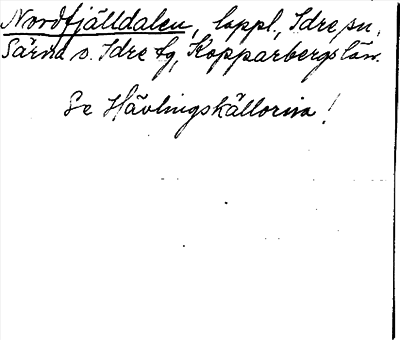 Nordfjälldalen, lappl., Idre sn,
Särna o. Idre tg, Kopparbergs län.
Se Hävlingskällorna!